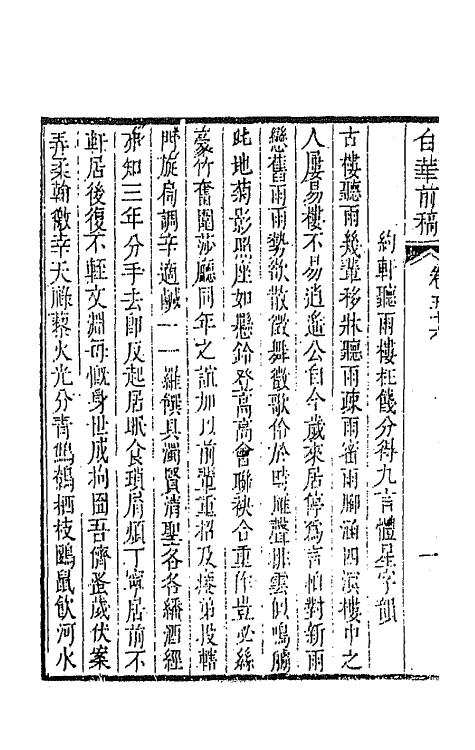 白華前稿
卷五十六
一
約軒聽雨樓枉餞分得九言體星字韻
古樓聽雨幾輩移牀聽雨疎雨密雨腳涵四溟樓中之
人屢易樓不易逍遙公自今歲來居停爲言怕對新雨
戀舊雨雨勢欲散微舞微歌俗於時雁聲排雲似鳴
此地菊影照座如懸鈴登高高會聯袂合重作豈必絲
豪竹奮園莎廳同年之誼加以前輩重招及 弟投轄
門旋扃調辛適鹹一一羅饌具濁賢清聖各各繙酒經
亦知三年分手去即反起居眠食瑣屑頻丁寧居前不
軒居後復不輊文淵 慨身世咸拘囹吾儕蚤歲伏案
弄柔翰徼幸天祿藜火光分青鷦鷯栖枝鼴鼠飲河水